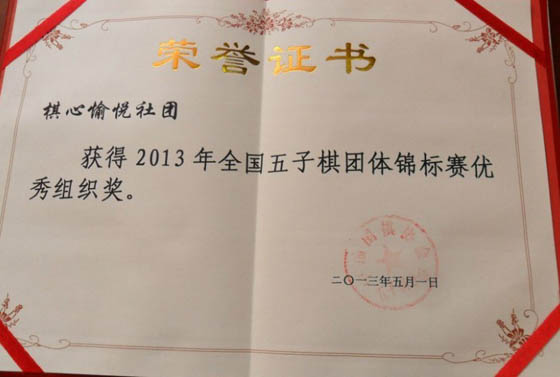 荣誉证书
棋心愉悦社团
获得 2013 年全国五子棋团体锦标赛优
秀组织奖。
二〇一三年五月一日